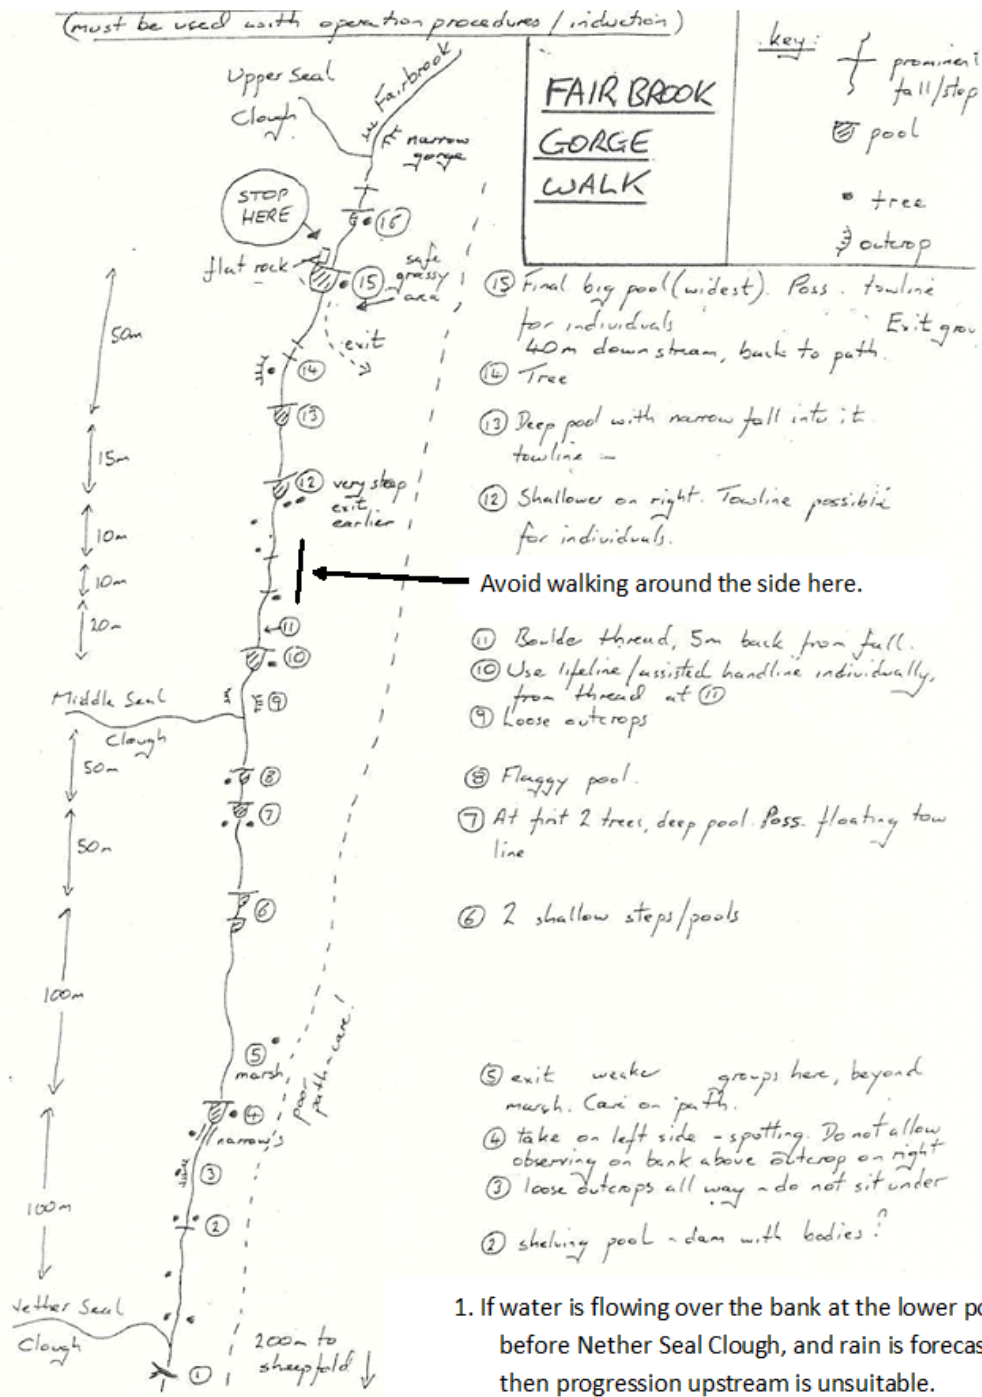 (must be used with operation procedures / induction)
Upper Seal
Clough
Fairbrook
narrow
gorge
STOP
HERE
flat rock
16
15
safe
grassy
area
exit
50m
14
13
15m
12 very steep
exit
earlier
10m
10m
20m
11
10
Middle Seal
Clough
9
50m
8
7
50m
6
100m
5
marsh
poor
path - care!
4
narrow's
3
100m
2
Nether Seal
Clough
1
200m to
sheepfold
FAIRBROOK
GORGE
WALK
key:
prominent
fall/step
pool
tree
outcrop
15 Final big pool (widest). Poss. towline
for individuals Exit grou
40m downstream, back to path.
14 Tree
13 Deep pool with narrow fall into it
towline -
12 Shallower on right. Towline possible
for individuals.
Avoid walking around the side here.
11 Boulder thread, 5m back from fall.
10 Use lifeline/assisted handline individually,
from thread at 11
9 Loose outcrops
8 Flaggy pool.
7 At first 2 trees, deep pool. Poss. floating tow
line
6 2 shallow steps/pools
5 exit weaker groups here, beyond
marsh. Care on path.
4 take on left side - spotting. Do not allow
observing on bank above outcrop on right
3 loose outcrops all way - do not sit under
2 shelving pool - dam with bodies?
1. If water is flowing over the bank at the lower po
before Nether Seal Clough, and rain is forecas
then progression upstream is unsuitable.